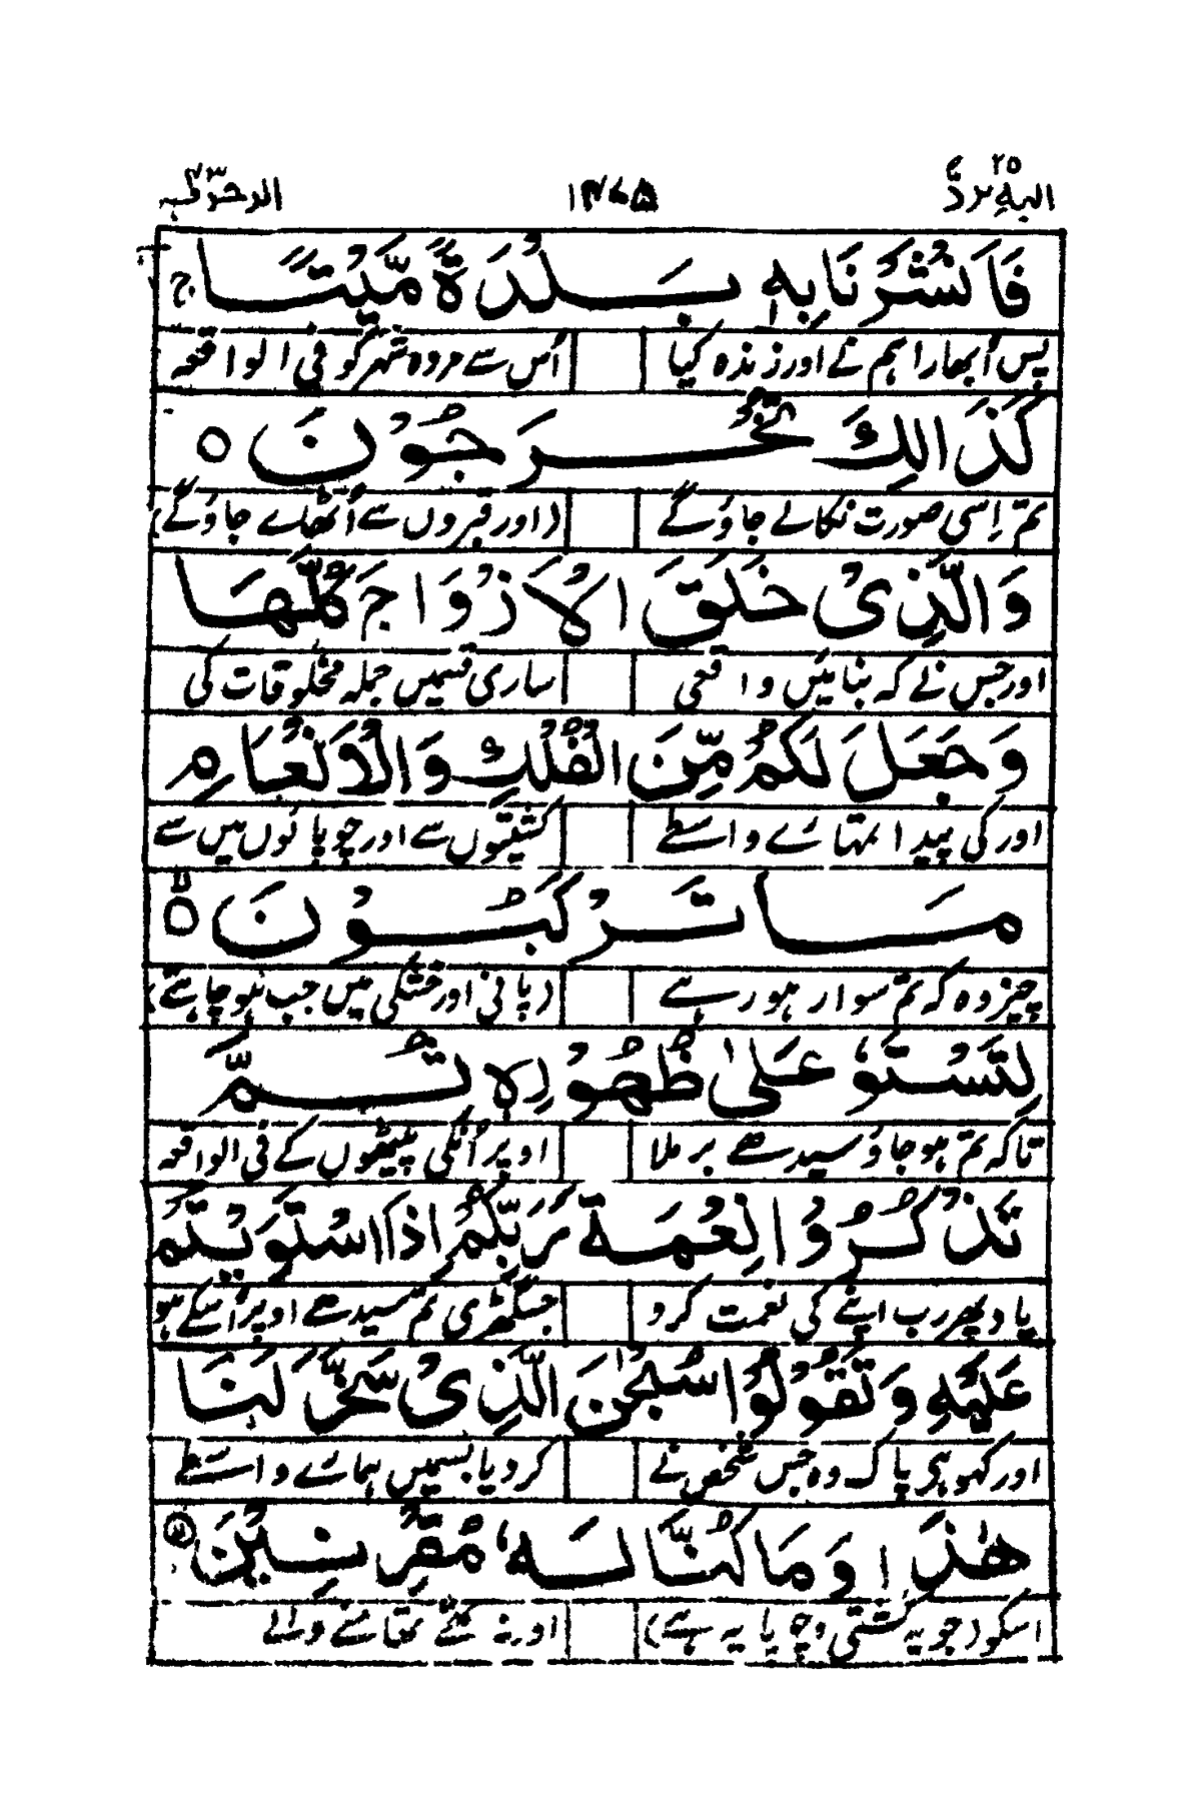 الیہ یرد ٢٥ ١٤٧٥ الزخرف ٤٣
فَاَنْشَرْنَا بِهٖ بَلْدَةً مَّيْتًا ج
پس اُبھارا ہم نے اور زندہ کیا اُس سے مردہ شہر کو فی الواقعہ
كَذٰلِكَ تُخْرَجُوْنَ ○
تم اِسی صورت نکالے جاؤگے (اور قبروں سے اُٹھائے جاؤگے)
وَالَّذِىْ خَلَقَ الْاَزْوَاجَ كُلَّهَا
اور جس نے کہ بنائیں واقعی ساری قسمیں جملہ مخلوقات کی
وَجَعَلَ لَكُمْ مِّنَ الْفُلْكِ وَالْاَنْعَامِ
اور کی پیدا تمہارے واسطے کشتیوں سے اور چوپائوں میں سے
مَا تَرْكَبُوْنَ ○
چیز وہ کہ تم سوار ہو رہے (پانی اور خشکی میں جب ہو چاہتے)
لِتَسْتَوٗا عَلٰى ظُهُوْرِهٖ ثُمَّ
تاکہ تم ہو جاؤ سیدھے برملا اوپر اُنکی پیٹھوں کے فی الواقعہ
تَذْكُرُوْا نِعْمَةَ رَبِّكُمْ اِذَا اسْتَوَيْتُمْ
یاد پھر رب اپنے کی نعمت کرو جس گھڑی تم سیدھے اوپر اُسکے ہو
عَلَيْهِ وَتَقُوْلُوْا سُبْحٰنَ الَّذِىْ سَخَّرَ لَنَا
اور کہو ہی پاک وہ جس شخص نے کر دیا بسمیں ہمارے واسطے
هٰذَا وَمَا كُنَّا لَهٗ مُقْرِنِيْنَ
اسکو (جو یہ کشتی و چوپایہ ہے) اور نہ تھے والے